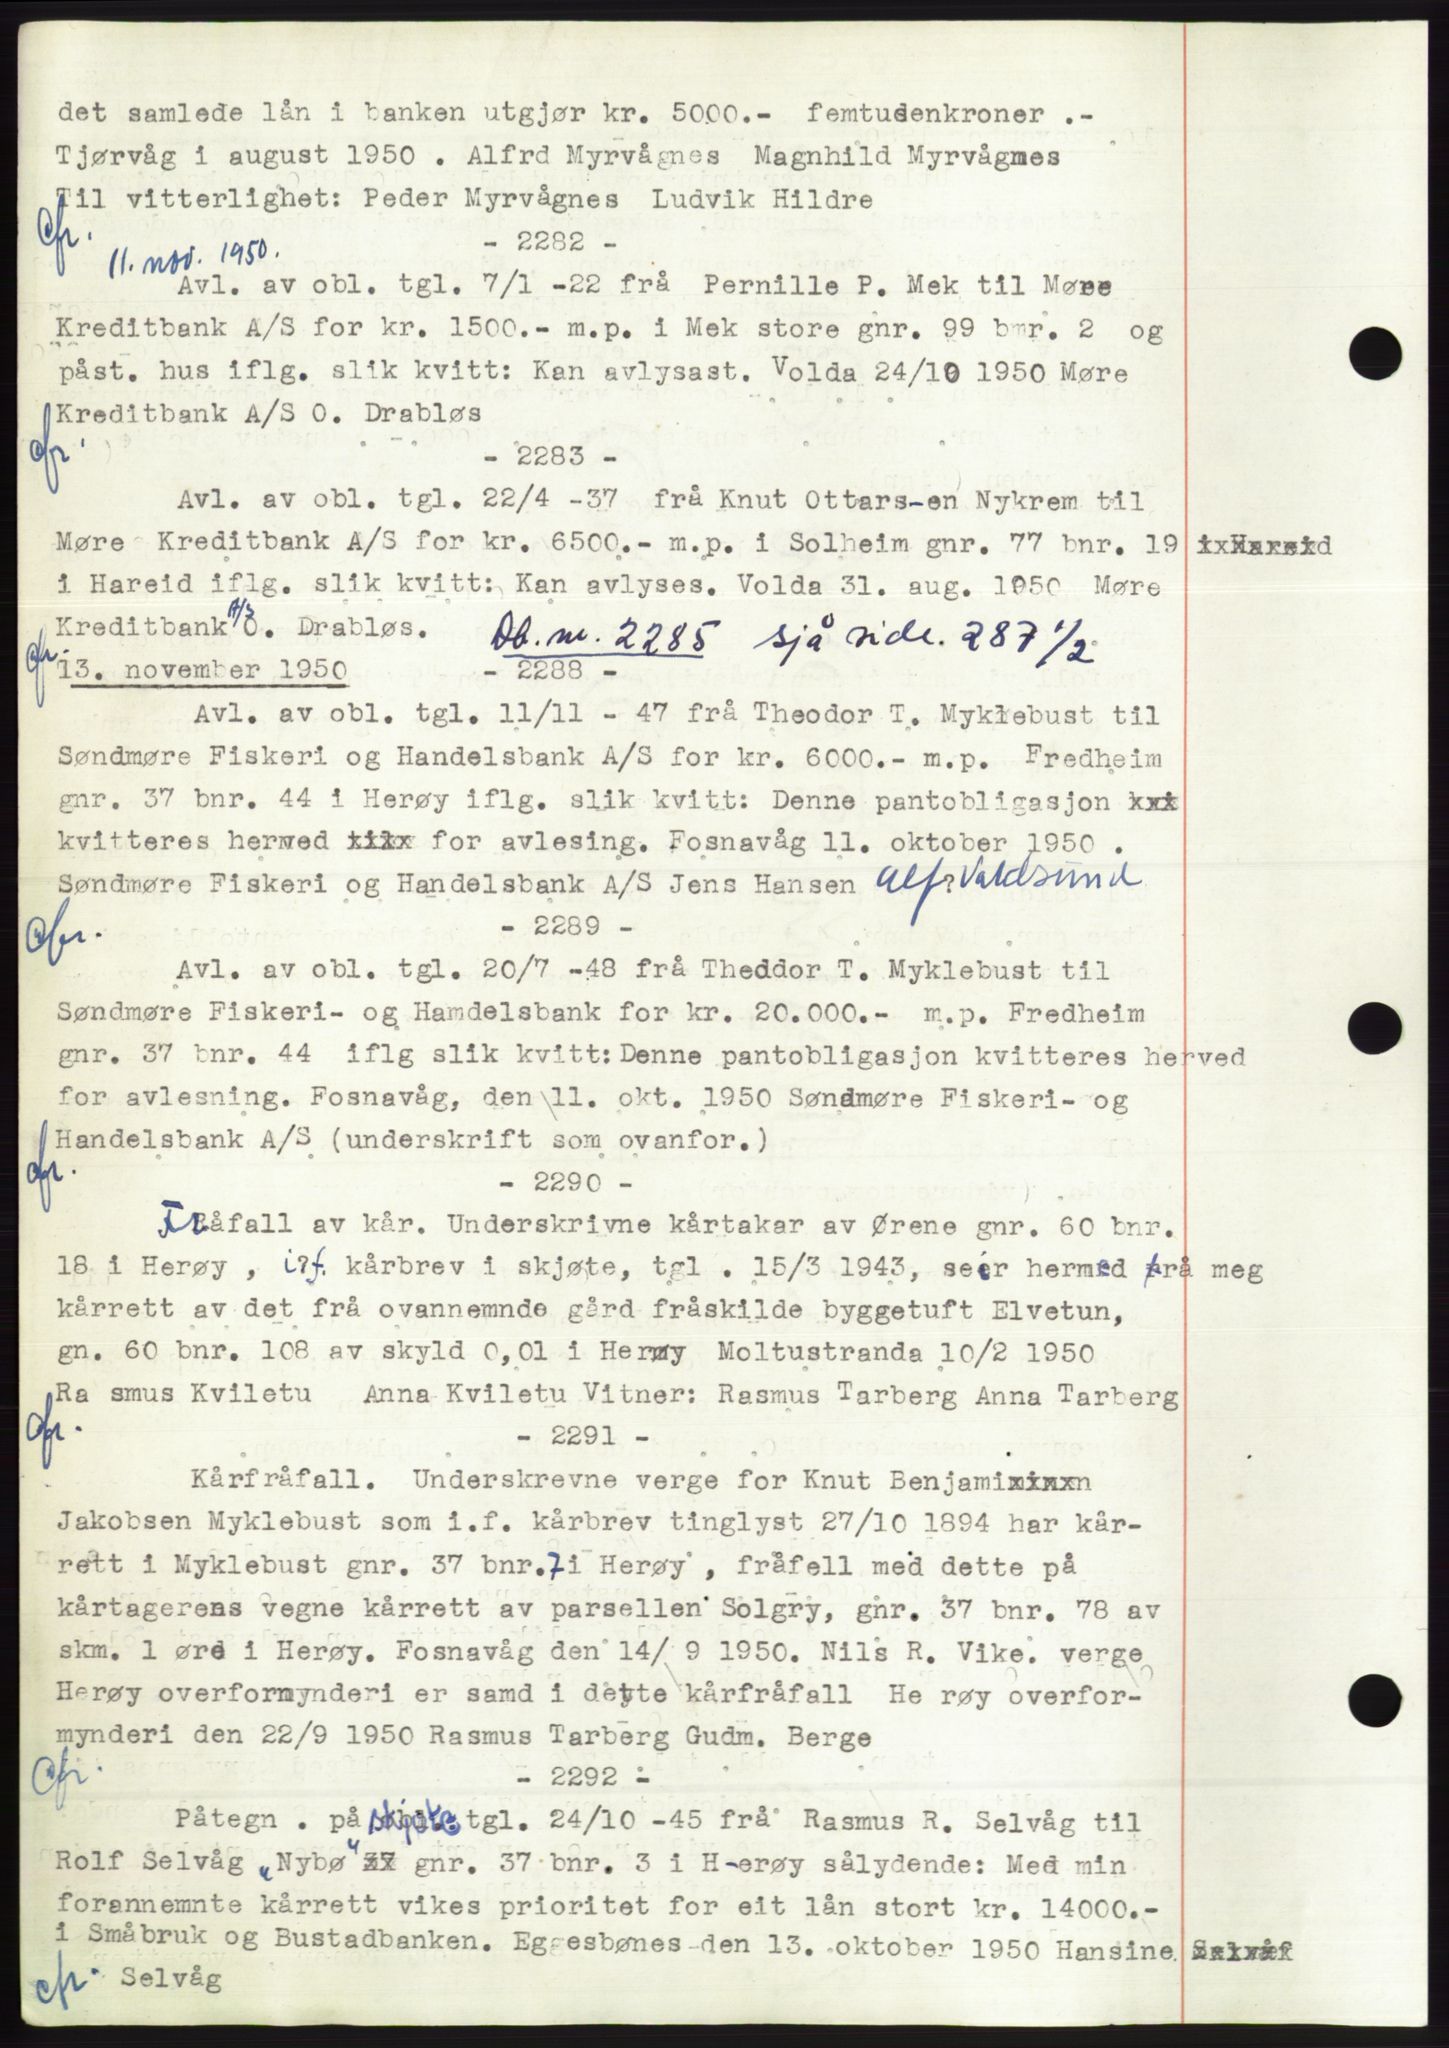 det samlede lån i banken utgjør kr. 5000.- femtusenkroner .-
Tjørvåg i august 1950 . Alfrd Myrvågnes Magnhild Myrvågnes
Til vitterlighet: Peder Myrvågnes Ludvik Hildre
cfr.
- 2282 -
11. nov. 1950.
Avl. av obl. tgl. 7/1 -22 frå Pernille P. Mek til Møre
Kreditbank A/S for kr. 1500.- m.p. i Mek store gnr. 99 bnr. 2 og
påst. hus iflg. slik kvitt: Kan avlysast. Volda 24/10 1950 Møre
Kreditbank A/S O. Drabløs
cfr.
- 2283 -
Avl. av obl. tgl. 22/4 -37 frå Knut Ottars-en Nykrem til
Møre Kreditbank A/S for kr. 6500.- m.p. i Solheim gnr. 77 bnr. 19 ixHareid
i Hareid iflg. slik kvitt: Kan avlyses. Volda 31. aug. 1950 Møre
Kreditbank A/S O. Drabløs. Db. nr. 2285 sjå side. 287 1/2
cfr.
13. november 1950 - 2288 -
Avl. av obl. tgl. 11/11 - 47 frå Theodor T. Myklebust til
Søndmøre Fiskeri og Handelsbank A/S for kr. 6000.- m.p. Fredheim
gnr. 37 bnr. 44 i Herøy iflg. slik kvitt: Denne pantobligasjon xxx
kvitteres herved tilx for avlesing. Fosnavåg 11. oktober 1950 .
Søndmøre Fiskeri og Handelsbank A/S Jens Hansen Alf Valdsund
cfr.
- 2289 -
Avl. av obl. tgl. 20/7 -48 frå Theddor T. Myklebust til
Søndmøre Fiskeri- og Hamdelsbank for kr. 20.000.- m.p. Fredheim
gnr. 37 bnr. 44 iflg slik kvitt: Denne pantobligasjon kvitteres herved
for avlesning. Fosnavåg, den 11. okt. 1950 Søndmøre Fiskeri- og
Handelsbank A/S (underskrift som ovanfor.)
cfr.
- 2290 -
Fråfall av kår. Underskrivne kårtakar av Ørene gnr. 60 bnr.
18 i Herøy , i?f. kårbrev i skjøte, tgl . 15/3 1943, seier hermed frå meg
kårrett av det frå ovannemnde gård fråskilde byggetuft Elvetun,
gn. 60 bnr. 108 av skyld 0,01 i Herøy Moltustranda 10/2 1950
Ra smus Kviletu Anna Kviletu Vitner: Rasmus Tarberg Anna Tarberg
cfr.
- 2291 -
Kårfråfall. Underskrevne verge for Knut Benjamixinxn
Jakobsen Myklebust som i.f. kårbrev tinglyst 27/10 1894 har kår-
rett i Myklebust gnr. 37 bnr. 7 i Herøy , fråfell med dette på
kårtagerens vegne kårrett av parsellen Solgry, gnr. 37 bnr. 78 av
skm. 1 øre i Herøy. Fosnavåg den 14/ 9 1950. Nils R. Vike. verge
Herøy overformynderi er samd i dette kårfråfall He røy overfor-
mynderi den 22/9 1950 Rasmus Tarberg Gudm. Berge
cfr.
- 2292 -
Påtegn . på skjøte tgl. 24/10 -45 frå Rasmus R. Selvåg til
Rolf Selvåg "Nybø" 37 gnr. 37 bnr. 3 i H-erøy sålydende: Med min
forannemnte kårrett vikes prioritet for eit lån stort kr. 14000.-
i Småbruk og Bustadbanken. Eggesbønes den 13. oktober 1950 Hansine
cfr. Selvåg